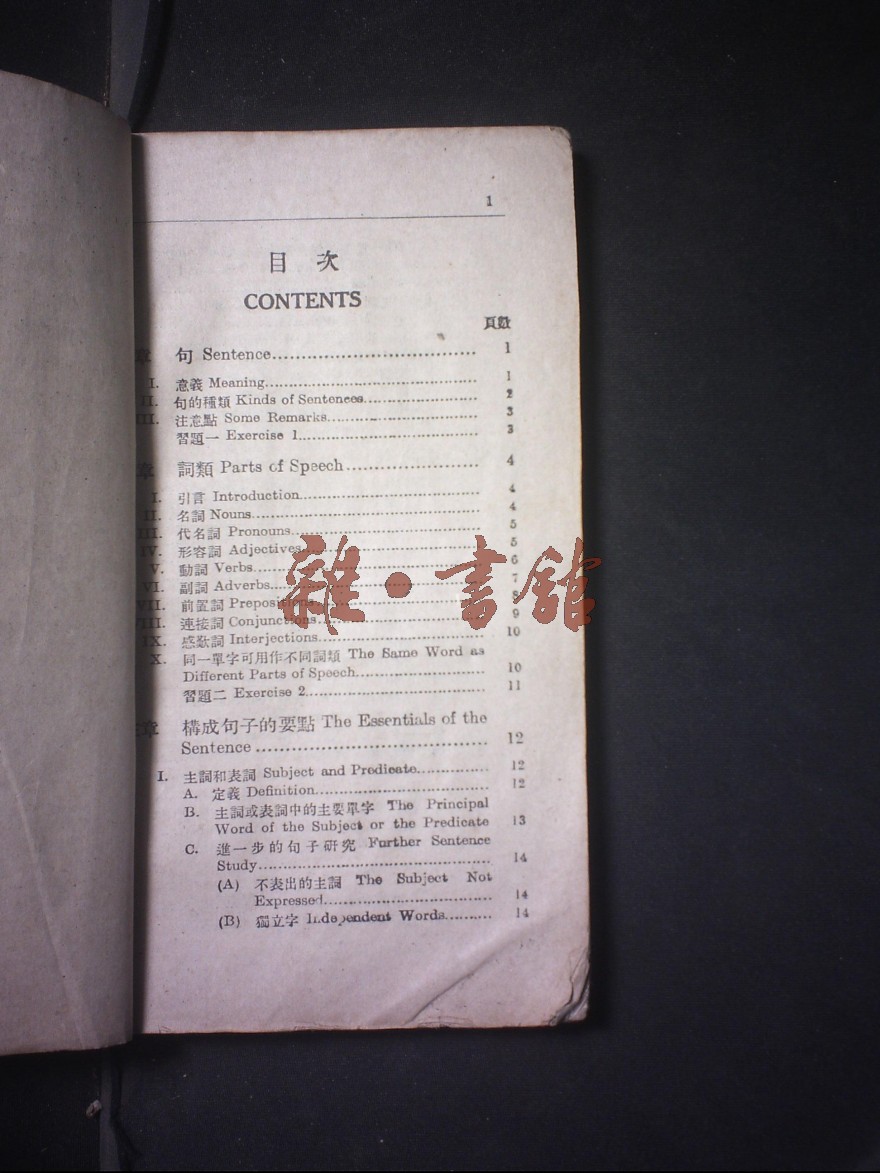 1
目 次
CONTENTS
頁數
章 句 Sentence.................................. 1
I. 意義 Meaning............................................ 1
II. 句的種類 Kinds of Sentences....................... 2
III. 注意點 Some Remarks............................... 3
習題一 Exercise 1.................................... 3
章 詞類 Parts of Speech....................... 4
I. 引言 Introduction.................................... 4
II. 名詞 Nouns............................................. 4
III. 代名詞 Pronouns...................................... 5
IV. 形容詞 Adjectives.................................... 5
V. 動詞 Verbs............................................. 6
VI. 副詞 Adverbs.......................................... 7
VII. 前置詞 Prepositions................................. 8
VIII. 連接詞 Conjunctions................................. 9
IX. 感歎詞 Interjections................................. 10
X. 同一單字可用作不同詞類 The Same Word as
Different Parts of Speech.......................... 10
習題二 Exercise 2.................................... 11
章 構成句子的要點 The Essentials of the
Sentence....................................... 12
I. 主詞和表詞 Subject and Predicate.............. 12
A. 定義 Definition.................................... 12
B. 主詞或表詞中的主要單字 The Principal
Word of the Subject or the Predicate 13
C. 進一步的句子研究 Further Sentence
Study............................................... 14
(A) 不表出的主詞 The Subject Not
Expressed.................................... 14
(B) 獨立字 Independent Words.......... 14
雜·書館